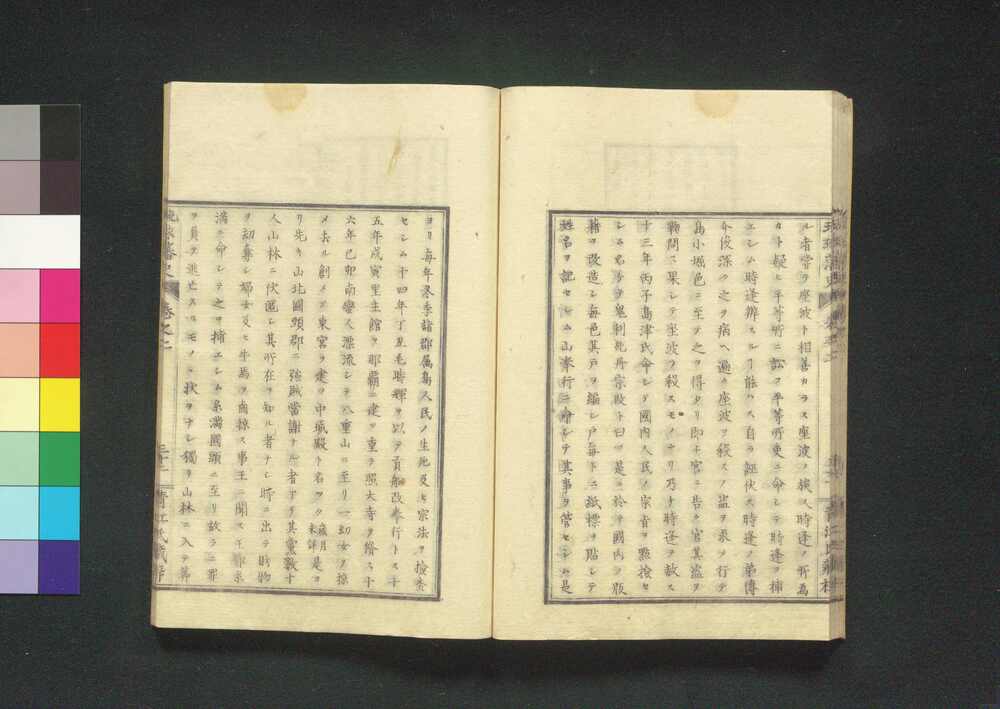 ル者嘗テ座波ト相善カラス座波ノ族人時逢ノ所爲
カト疑ヒ平等所ニ訟フ平等所吏ニ命シテ時逢ヲ捕
エシム時逢辨スル丁能ハス自ラ誣伏ス時逢ノ弟傳
介後深ク之ヲ病ヘ遍ク座波ヲ殺スノ盗ヲ索ノ行テ
島小堀邑ニ至テ之ヲ得タリ即チ官ニ告ク官其盗ヲ
鞫問ニ果シテ座波ヲ殺スモノナリ乃チ時逢ヲ赦ス
十三年丙子島津氏命シテ國内人民ノ宗旨ヲ點撿セ
シム
籍ヲ改造シ毎邑其戸ヲ編シ戸毎トニ紙標ヲ貼シテ
姓名ヲ記セシム山奉行ニ命シテ其事ヲ管セシム是
琉球藩史 巻之二
ヨリ毎年冬季諸郡属島人民ノ生死及ヒ宗法ヲ撿査
セシム十四年丁丑毛時輝ヲ以テ貢船改奉行トス十
五年戊寅里主館ヲ那覇ニ建ツ重テ照太寺ヲ修ス十
六年己卯南蠻人漂流シテ八重山ニ至リ一幼女ヲ掠
メ去ル創メテ東宮ヲ建ツ中城殿ト名ツク歳月未詳是ヨ
リ先キ山北國頭郡ニ強賊當謝ナル者アリ其黨數十
人山林ニ伏匿シ其所在ヲ知ル者ナシ時ニ出テ財物
ヲ劫奪シ婦女及ヒ牛馬ヲ鹵掠ス事王ニ聞ス王
満ニ命シテ之ヲ捕エシム糸満國頭ニ至リ故ラニ罪
ヲ負テ逃亡スルモノヽ状ヲナシ獨リ山林ニ入テ
琉球藩史 巻之二 三十二